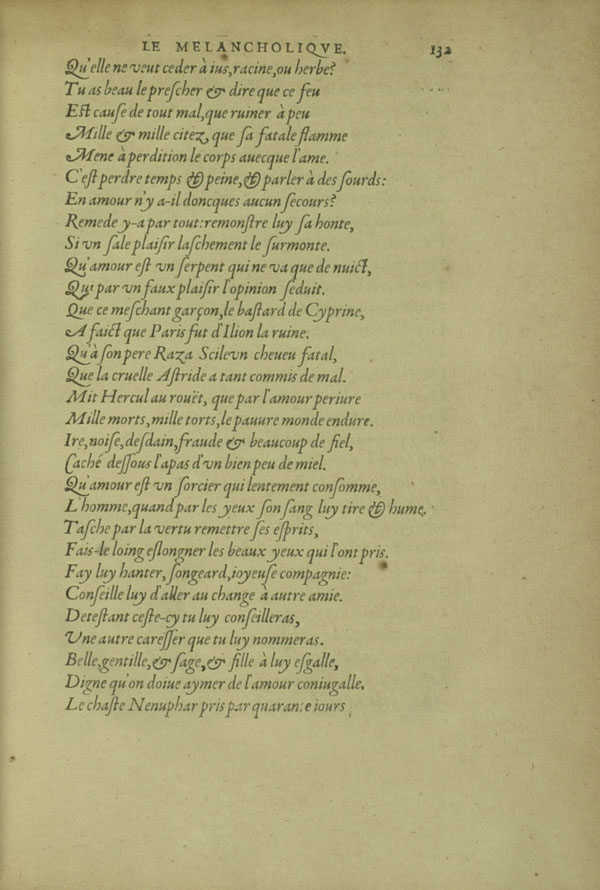 LE MELANCHOLIQVE. 132
Qu'elle ne veut ceder à ius, racine, ou herbe?
Tu as beau le preſcher & dire que ce feu
Eſt cauſe de tout mal, que ruiner à peu
Mille & mille citez, que ſa fatale flamme
Mene à perdition le corps auecque l'ame.
C'eſt perdre temps & peine, & parler à des ſourds:
En amour n'y a-il doncques aucun ſecours?
Remede y-a par tout: remonſtre luy ſa honte,
Si vn ſale plaiſir laſchement le ſurmonte.
Qu'amour eſt vn ſerpent qui ne va que de nuict,
Qui par vn faux plaiſir l'opinion ſeduit.
Que ce meſchant garçon, le baſtard de Cyprine,
A faict que Paris fut d'Ilion la ruine.
Qu'à ſon pere Raza Scilevn cheueu fatal,
Que la cruelle Aſtride a tant commis de mal.
Mit Hercul au rouët, que par l'amour periure
Mille morts, mille torts, le pauure monde endure.
Ire, noiſe, deſdain, fraude & beaucoup de fiel,
Caché deſſous l'apas d'vn bien peu de miel.
Qu'amour eſt vn ſorcier qui lentement conſomme,
L'homme, quand par les yeux ſon ſang luy tire & hume.
Taſche par la vertu remettre ſes eſprits,
Fais-le loing eſlongner les beaux yeux qui l'ont pris.
Fay luy hanter, ſongeard, ioyeuſe compagnie:
Conſeille luy d'aller au change à autre amie.
Deteſtant ceſte-cy tu luy conſeilleras,
Vne autre careſſer que tu luy nommeras.
Belle, gentille, & ſage, & fille à luy eſgalle,
Digne qu'on doiue aymer de l'amour coniugalle.
Le chaſte Nenuphar pris par quarante iours